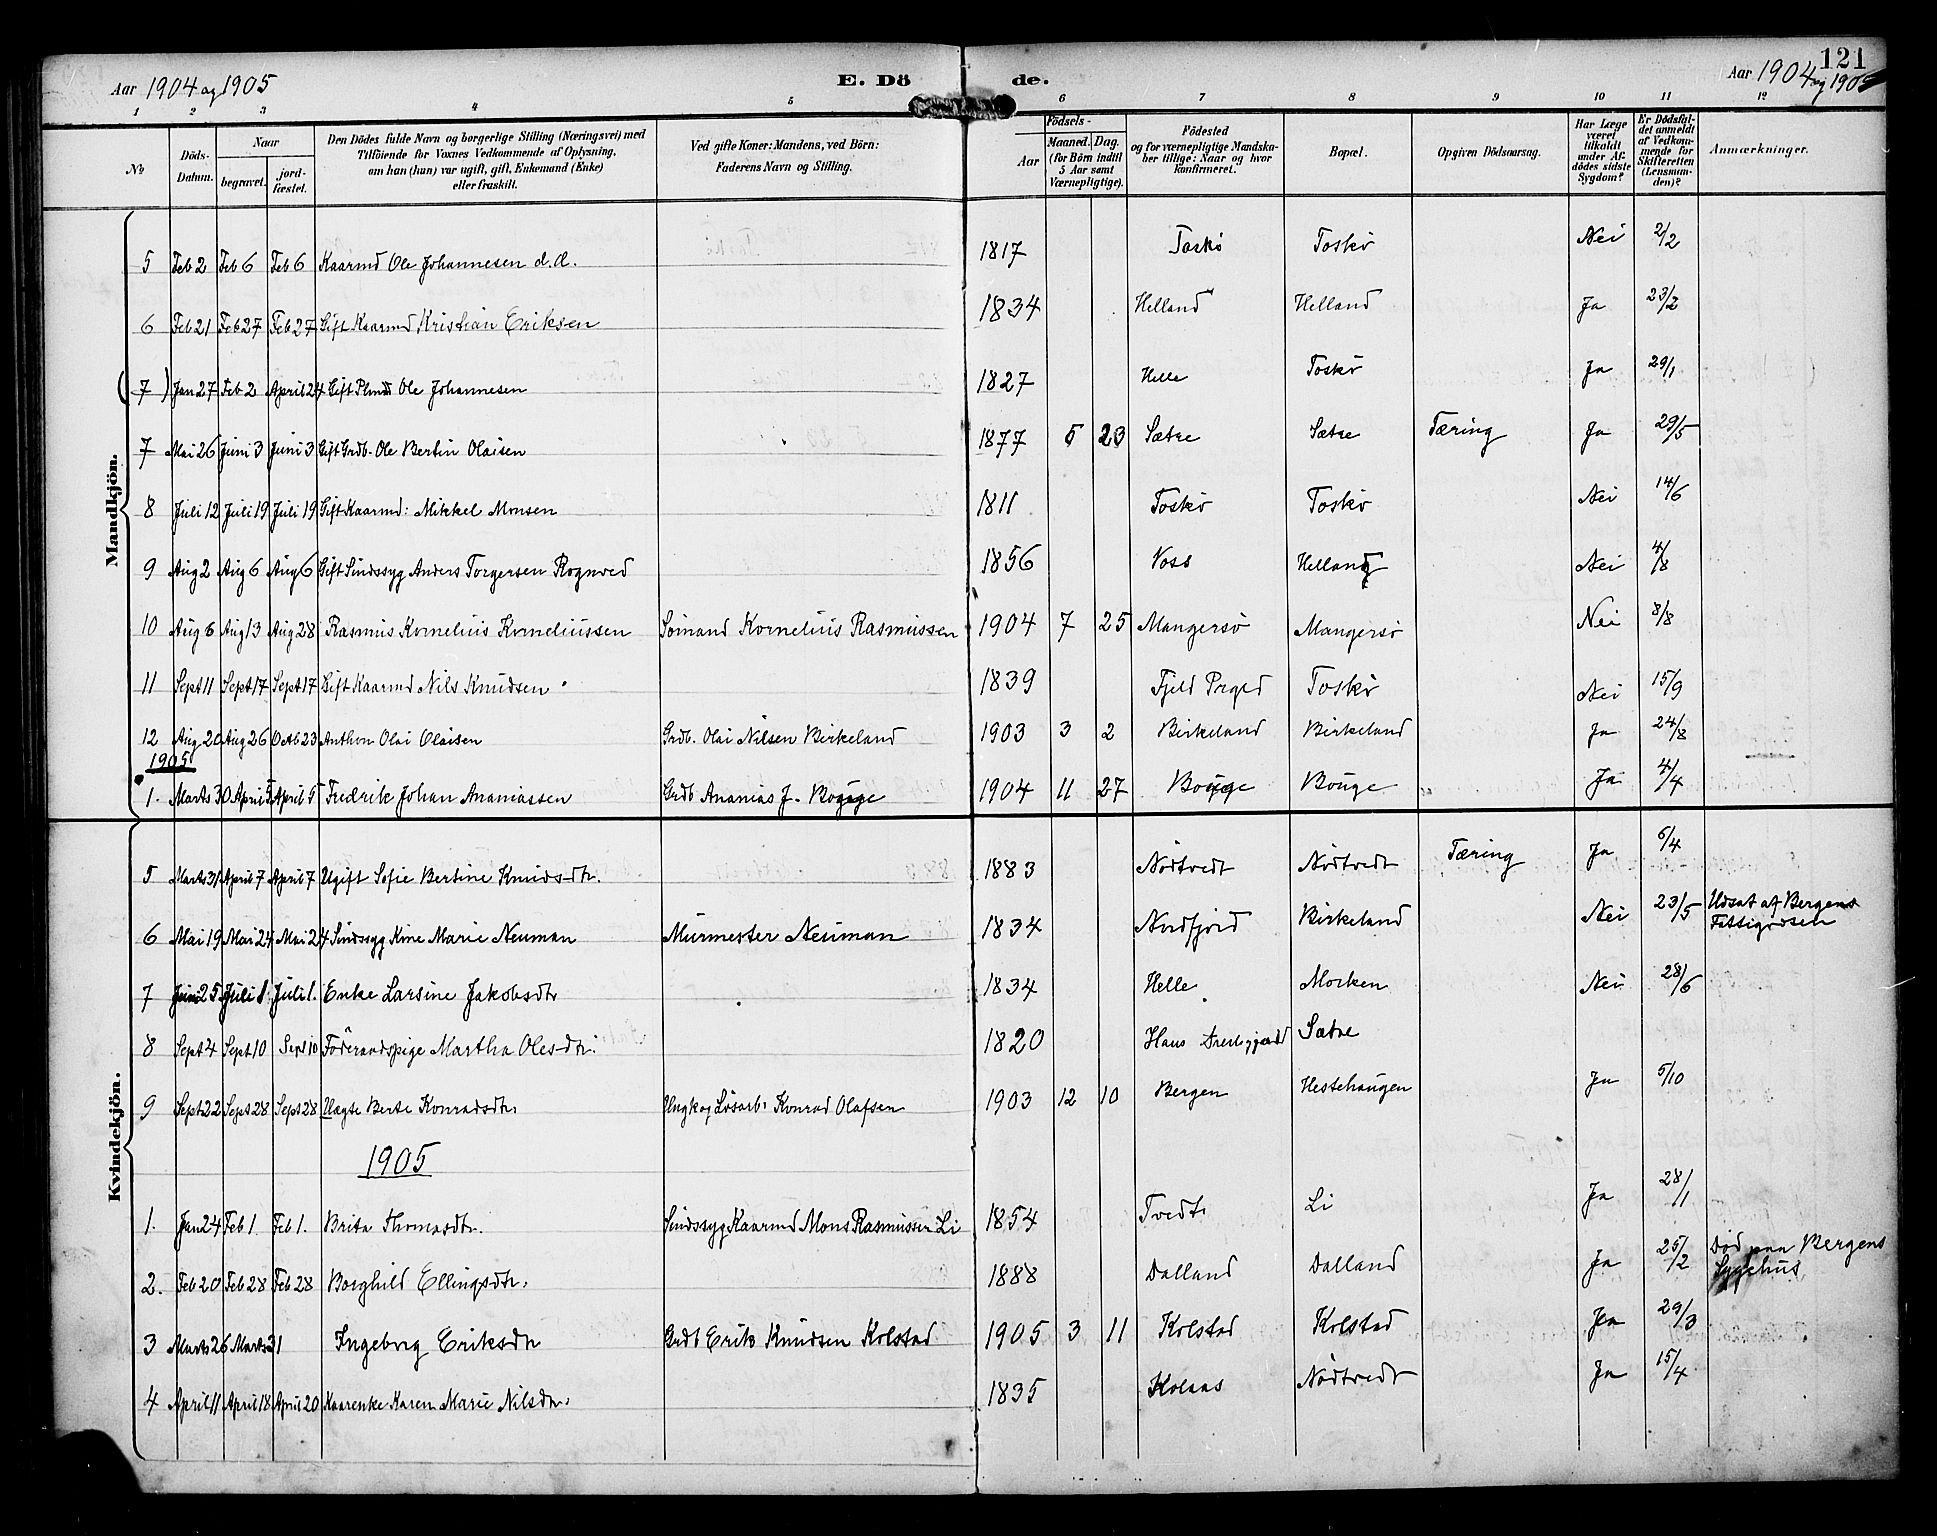 121
Aar 1904 og 1905 E. Dö de. Aar 1904 og 1905
1 2 3 4 5 6 7 8 9 10 11 12
No
Döds-Datum.
Naar
begravet.
jord-fæstet.
Den Dödes fulde Navn og borgerlige Stilling (Næringsvei) med
Tilföiende for Voxnes Vedkommende af Oplysning,
om han (hun) var ugift, gift, Enkemand (Enke)
eller fraskilt.
Ved gifte Koner: Mandens, ved Börn:
Faderens Navn og Stilling.
Födsels-
Aar
Maaned. Dag.
(for Börn indtil
5 Aar samt
Værnepligtige).
Födested
og for værnepligtige Mandska-
ber tillige: Naar og hvor
konfirmeret.
Bopæl.
Opgiven Dödsaarsag.
Har Læge
været
tilkaldt
under Af-
dödes sidste
Sygdom?
Er Dödsfal-
det anmeldt
af Vedkom-
mende for
Skifteretten
(Lensman-
den)?
Anmærkninger.
Mandkjön.
5 Feb 2 Feb 6 Feb 6 Kaarmd Ole Johannesen d.d. 1817 Toskö Toskö Nei 2/2
6 Feb 21 Feb 27 Feb 27 Gift Kaarmd Kristian Eriksen 1834 Helland Helland Ja 23/2
(7) Jan 27 Feb 2 April 24 Gift Ole Johannesen 1827 Helle Toskö Ja 29/1
7 Mai 26 Juni 3 Juni 3 Gift Grdb. Ole Bertin Olaisen 1877 5 23 Sætre Sætre Tæring Ja 29/5
8 Juli 12 Juli 19 Juli 19 Gift Kaarmd: Mikkel Monsen 1811 Toskö Toskö Nei 14/6
9 Aug 2 Aug 6 Aug 6 Gift Sindssyg Anders Torgersen Rognved 1856 Voss Helland Nei 4/8
10 Aug 6 Aug 13 Aug 28 Rasmus Kornelius Korneliussen Sömand Kornelius Rasmussen 1904 7 25 Mangersö Mangersö Nei 8/8
11 Sept 11 Sept 17 Sept 17 Gift Kaarmd Nils Knudsen 1839 Fjeld Prgjd Toskö Nei 15/9
12 Aug 20 Aug 26 Octb 23 Anthon Olai Olaisen Grdb. Olai Nilsen Birkeland 1903 3 2 Birkeland Birkeland Ja 24/8
1905
1. Marts 30 April 5 April 5 Fredrik Johan Ananiassen Grdb Ananias J. Bouge 1904 11 27 Bouge Bouge Ja 4/4
Kvindekjön.
5 Marts 31 April 7 April 7 Ugift Sofie Bertine Knudsdtr. 1883 Nödtvedt Nödtvedt Tæring Ja 5/4
6 Mai 19 Mai 24 Mai 24 Sindssyg Kine Marie Neuman Murmester Neuman 1834 Nordfjord Birkeland Nei 23/5 Udsat af Bergens
Fattigvæsen
7 Juni 25 Juli 1 Juli 1. Enke Larsine Jakobsdtr 1834 Helle Morken Nei 28/6
8 Sept 4 Sept 10 Sept 10 Föderaadspige Martha Olesdtr. 1820 Hans Sætre
9 Sept 22 Sept 28 Sept 28 Uægte Berte Konradsdtr. Ungk og Lösarb. Konrad Olafsen 1903 12 10 Bergen Hestehaugen Ja 5/10
1905
1. Jan 24 Feb 1 Feb 1. Brita Thomasdtr. Sindssyg Kaarmd Mons Rasmussen Li 1854 Tvedt Li Ja 28/1
2. Feb 20 Feb 28 Feb 28 Borghild Ellingsdtr. 1888 Dalland Dalland Ja 25/2 Död paa Bergens
Sygehus
3 Marts 26 Marts 31 Ingeborg Eriksdtr Grdb Erik Knudsen Kolstad 1905 3 11 Kolstad Kolstad Ja 29/3
4 April 11 April 18 April 20 Kaarenke Karen Marie Nilsdtr. 1835 Kolaas Nödtvedt Ja 15/4